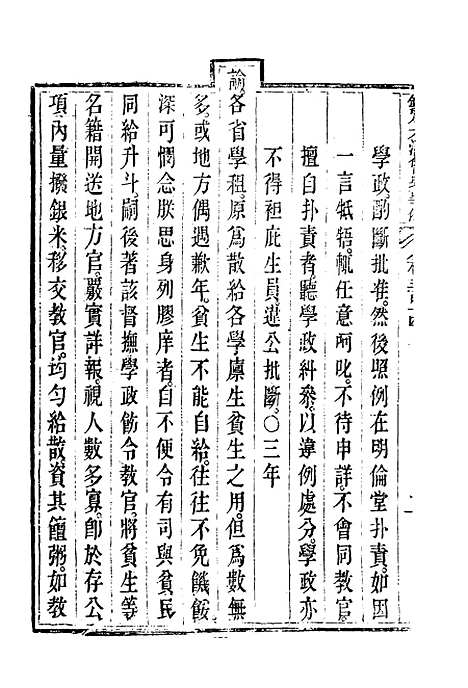 學政酌斷批准。然後照例在明倫堂扑責。如因
一言牴牾。輒任意呵叱。不待申詳。不會同教官。
擅自扑責者。聽學政糾參。以違例處分。學政亦
不得袒庇生員違公批斷。〇三年
諭。各省學租。原爲散給各學廩生貧生之用。但爲數無
多。或地方偶遇歉年。貧生不能自給。往往不免饑餒。
深可憫念。朕思身列膠庠者。自不便令有司與貧民
同給升斗。嗣後著該督撫學政飭令教官。將貧生等
名籍開送地方官。嚴實詳報。視人數多寡。卽於存公
項內量撥銀米。移交教官。均勻給散。資其饘粥。如教